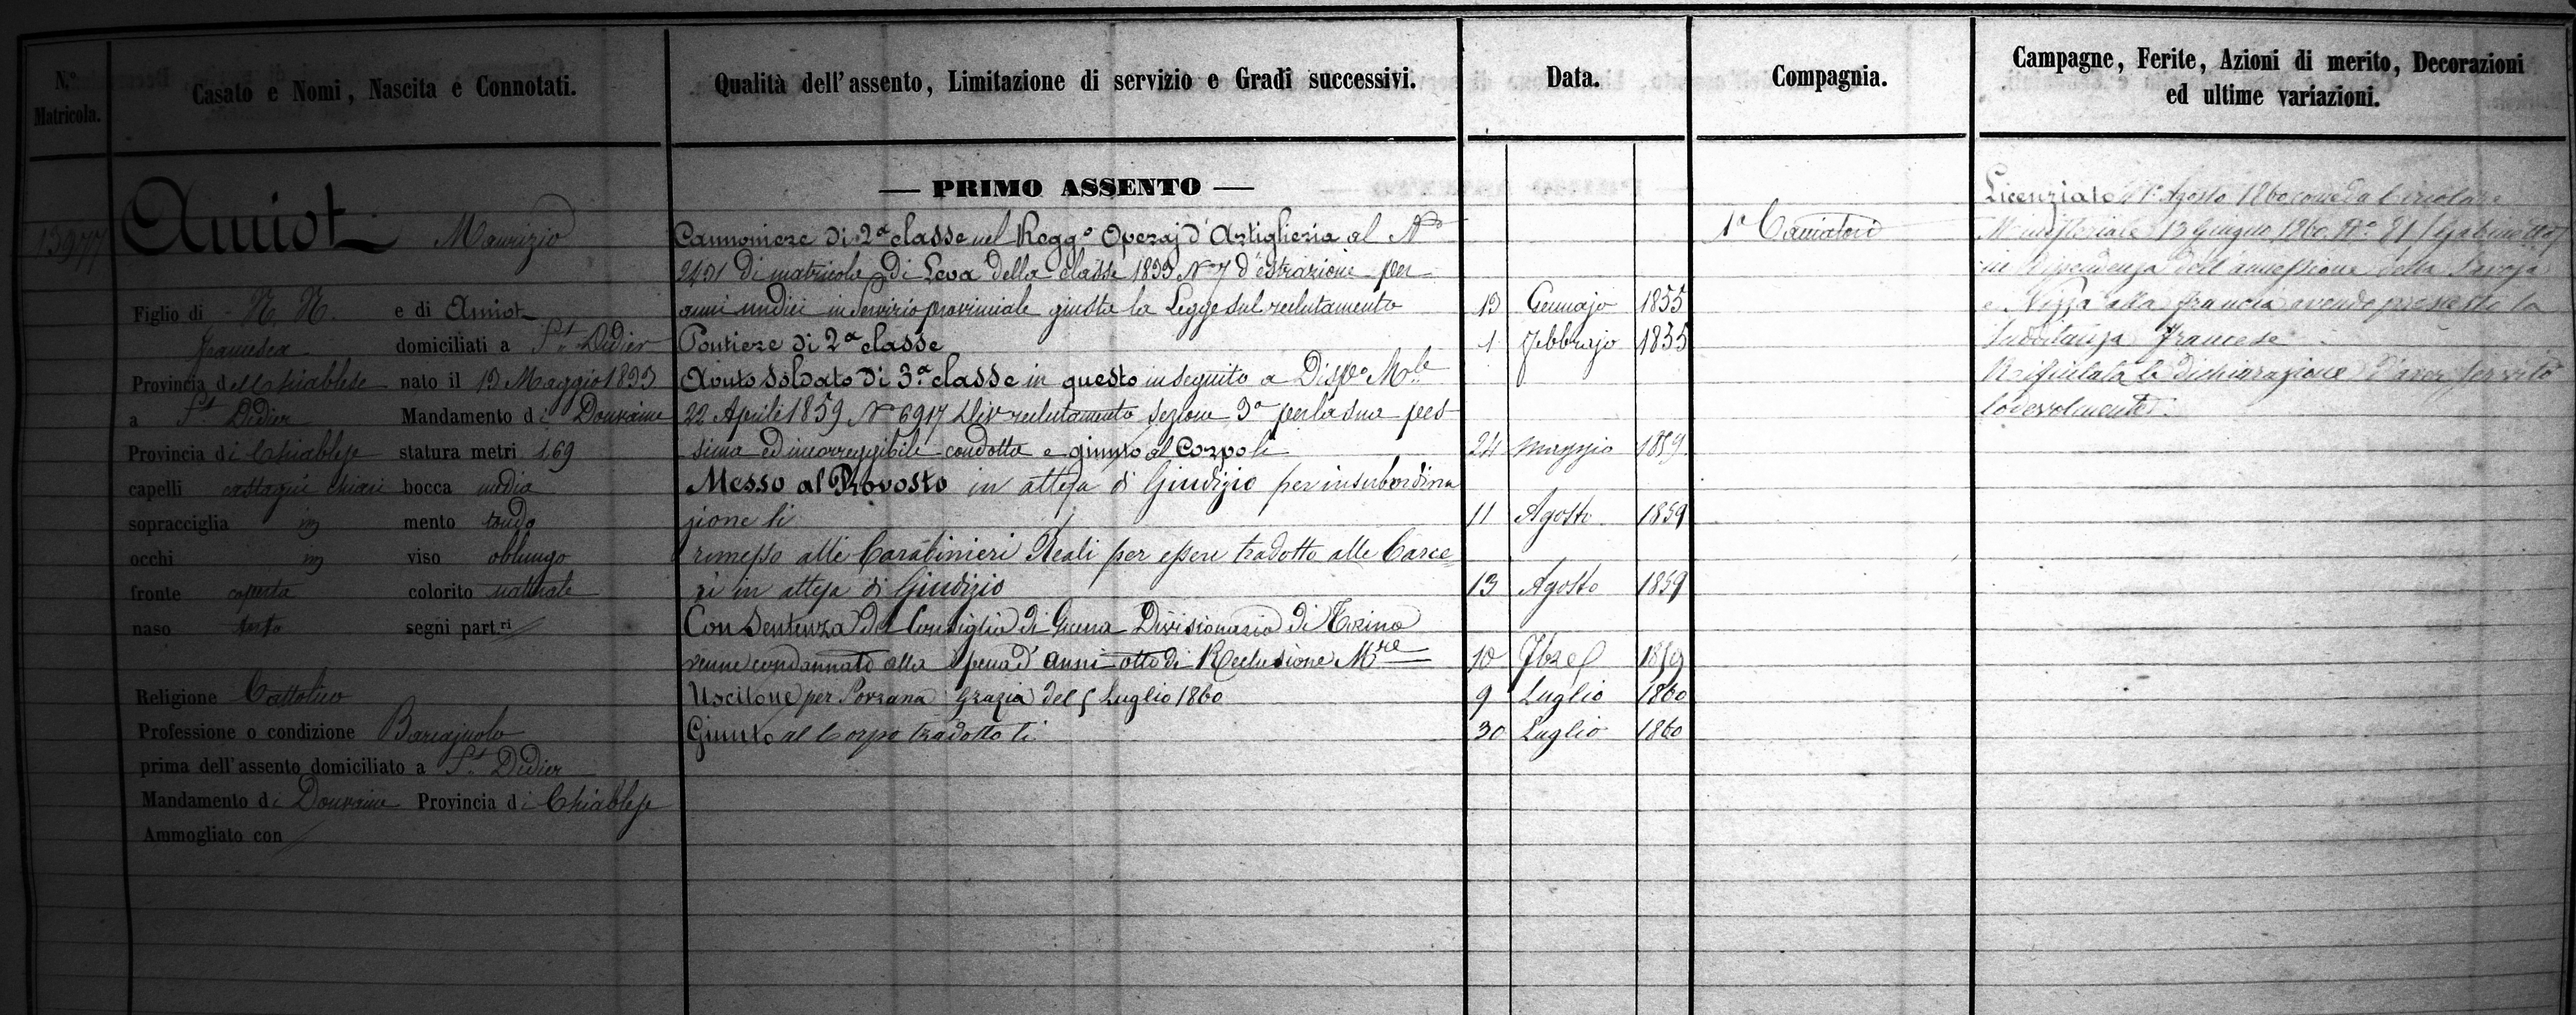 N.° Matricola.
Casato e Nomi, Nascita e Connotati.
Qualità dell'assento, Limitazione di servizio e Gradi successivi.
Data.
Compagnia.
Campagne, Ferite, Azioni di merito, Decorazioni
ed ultime variazioni.
13977
Amiot Maurizio
Figlio di N. N. e di Amiot
Francesca domiciliati a St. Didier
Provincia del Chiablese nato il 13 Maggio 1833
a St. Didier Mandamento di Douvaine
Provincia di Chiablese statura metri 1,69
capelli castagni chiari bocca media
sopracciglia mento tondo
occhi viso oblungo
fronte coperta colorito naturale
naso segni part.ri
Religione Cattolico
Professione o condizione Barcajuolo
prima dell'assento domiciliato a St. Didier
Mandamento di Douvaine Provincia di Chiablese
Ammogliato con
— PRIMO ASSENTO —
Cannoniere di 2a classe nel Regg.o Operaj d'Artiglieria al No
2431 di matricola di Leva della classe 1833 No 7 d'estrazione per
anni undici in servizio provinciale giusta la Legge sul reclutamento 13 Gennajo 1855
Pontiere di 2a classe 1 Febbrajo 1855
Avuto soldato di 3a classe in questo in seguito a Disp.o M.le
22 Aprile 1859 No 6917 Div reclutamento sezione 3a per la sua pes
sima ed incorreggibile condotta e giunto al Corpo li 24 Maggio 1859
Messo al Provosto in attesa di Giudizio per insubordina
zione li 11 Agosto 1859
rimesso alli Carabinieri Reali per essere tradotto alle Carce
ri in attesa di Giudizio 13 Agosto 1859
Con Sentenza del Consiglio di Guerra Divisionario di Torino
venne condannato alla pena d'anni otto di Reclusione M.re 10 7bre 1859
Uscitone per Sovrana Grazia del 5 Luglio 1860 9 Luglio 1860
Giunto al Corpo tradotto li 30 Luglio 1860
1a
Licenziato li 1° Agosto 1860 come da Circolare
Ministeriale 13 Giugno 1860 No 21 (Gabinetto)
in dipendenza dell'annessione della Savoja
e Nizza alla Francia avendo prescelto la
sudditanza Francese.
Rifiutata la dichiarazione d'aver servito
lodevolmente.